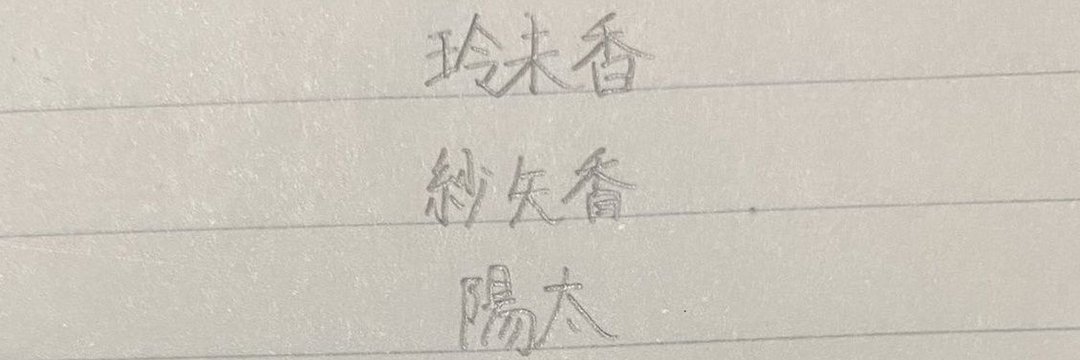 玲未香
紗矢香
陽太